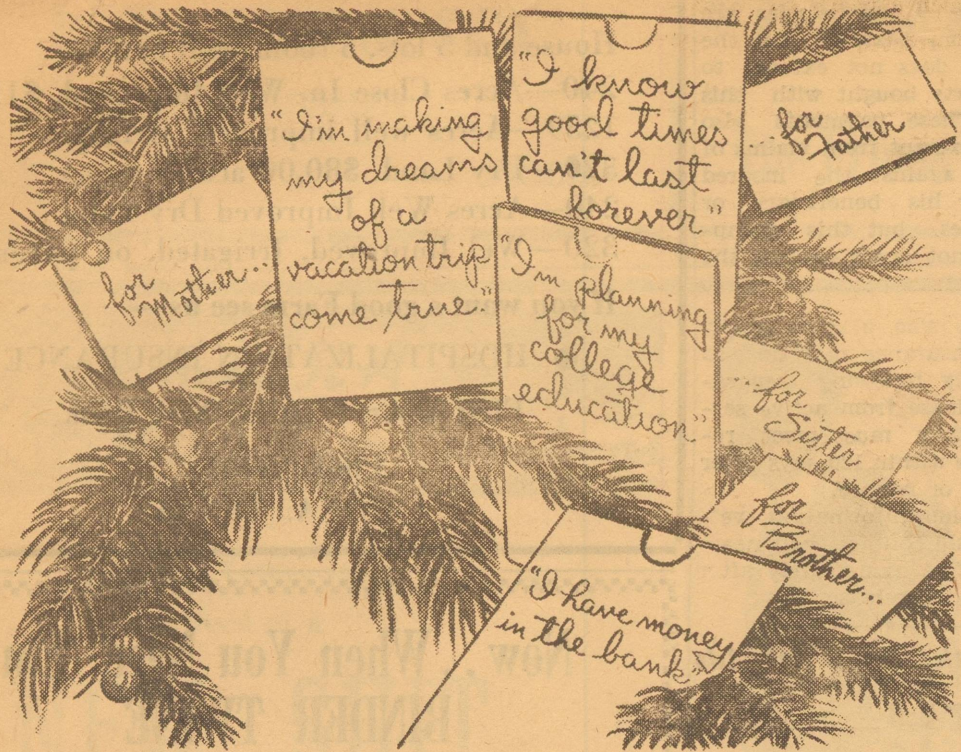 for
Mother...
"I'm making
my dreams
of a
vacation trip
come true."
"I know
good times
can't last
forever"
for
Father
"I'm planning
for my
college
education"
...for
Sister
for
Brother...
"I have money
in the bank"